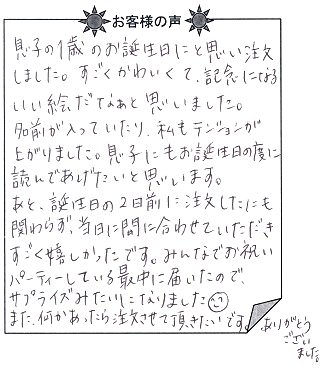 お客様の声
息子の1歳のお誕生日にと思い注文
しました。すごくかわいくて、記念になる
いい絵だなぁと思いました。
名前が入っていたり、私もテンションが
上がりました。息子にもお誕生日の度に
読んであげたいと思います。
あと、誕生日の2日前に注文したにも
関わらず、当日に間に合わせていただき
すごく嬉しかったです。みんなでお祝い
パーティーしている最中に届いたので、
サプライズみたいになりました
また何かあったら注文させて頂きたいです。
ありがとう
ござい
ました。